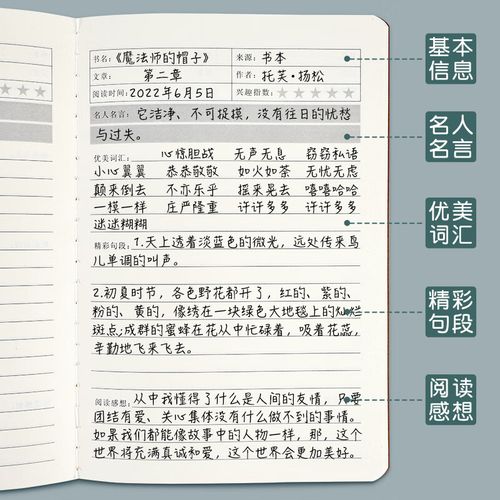 书名：《魔法师的帽子》 来源：书本
文章：第二章 作者：托芙·扬松
阅读时间：2022年6月5日 兴趣指数：
名人名言：它洁净、不可捉摸，没有往日的忧愁
与过失。
优美词汇：心惊胆战 无声无息 窃窃私语
小心翼翼 恭恭敬敬 如火如荼 无忧无虑
颠来倒去 不亦乐乎 摇来晃去 嘻嘻哈哈
一模一样 庄严隆重 许许多多 许许多多
迷迷糊糊
精彩句段：1.天上透着淡蓝色的微光，远处传来鸟
儿单调的叫声。
2.初夏时节，各色野花都开了，红的、紫的、
粉的、黄的，像绣在一块绿色大地毯上的灿烂
斑点;成群的蜜蜂在花从中忙碌着，吸着花蕊，
辛勤地飞来飞去。
阅读感想：从中我懂得了什么是人间的友情，只要
团结有爱、关心集体没有什么做不到的事情。
如果我们都能像故事中的人物一样，那，这个
世界将充满真诚和爱，这个世界会更加美好。
基本
信息
名人
名言
优美
词汇
精彩
句段
阅读
感想